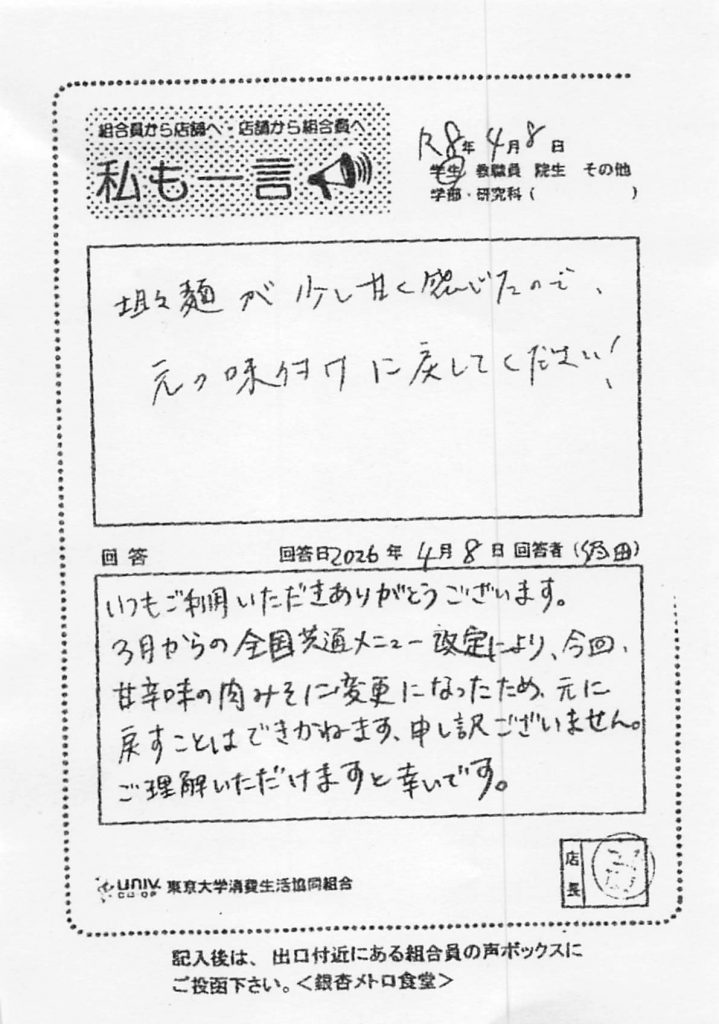 組合員から店舗へ・店舗から組合員へ
私も一言
R8年 4月 8日
学生 教職員 院生 その他
学部・研究科( )
坦々麺が少し甘く感じたので、
元の味付けに戻してください!
回答 回答日2026年 4月 8日 回答者( 田)
いつもご利用いただきありがとうございます。
3月からの全国共通メニュー改定により、今回、
甘辛味の肉みそに変更になったため、元に
戻すことはできかねます、申し訳ございません。
ご理解いただけますと幸いです。
店長
univ.
CO-OP
東京大学消費生活協同組合
記入後は、出口付近にある組合員の声ボックスに
ご投函下さい。<銀杏メトロ食堂>